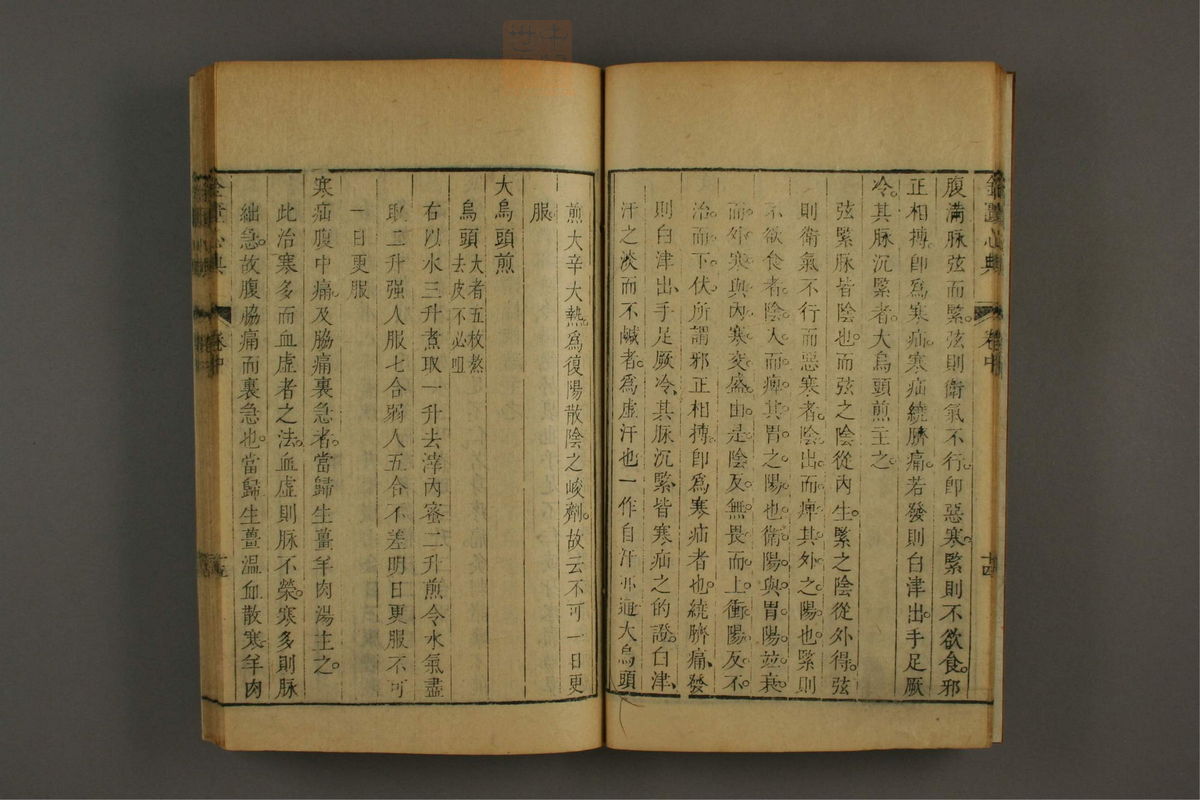 腹滿脉弦而緊。弦則衛氣不行。卽惡寒。緊則不欲食。邪
正相搏。卽爲寒疝。寒疝繞臍痛。若發則白津出。手足厥
冷。其脉沉緊者。大烏頭煎主之。
弦緊脉皆陰也。而弦之陰從內生。緊之陰從外得。弦
則衛氣不行而惡寒者。陰出而痺其外之陽也。緊則
不欲食者。陰入而痺其胃之陽也。衛陽與胃陽並衰。
而外寒與內寒交盛。由是陰反無畏而上衝。陽反不
治而下伏。所謂邪正相搏。卽爲寒疝者也。繞臍痛、發
則白津出、手足厥冷、其脉沉緊、皆寒疝之的證。白津、
汗之淡而不鹹者。爲虛汗也一作自汗亦通大烏頭
煎大辛大熱。爲復陽散陰之峻劑。故云不可一日更
服。
大烏頭煎
烏頭大者五枚熬去皮不必咀
右以水三升煮取一升去滓內蜜二升煎令水氣盡
取二升强人服七合弱人五合不差明日更服不可
一日更服
寒疝腹中痛。及脇痛裏急者。當歸生薑羊肉湯主之。
此治寒多而血虛者之法。血虛則脉不榮。寒多則脉
絀急。故腹脇痛而裏急也。當歸生薑溫血散寒。羊肉
卷中
十四